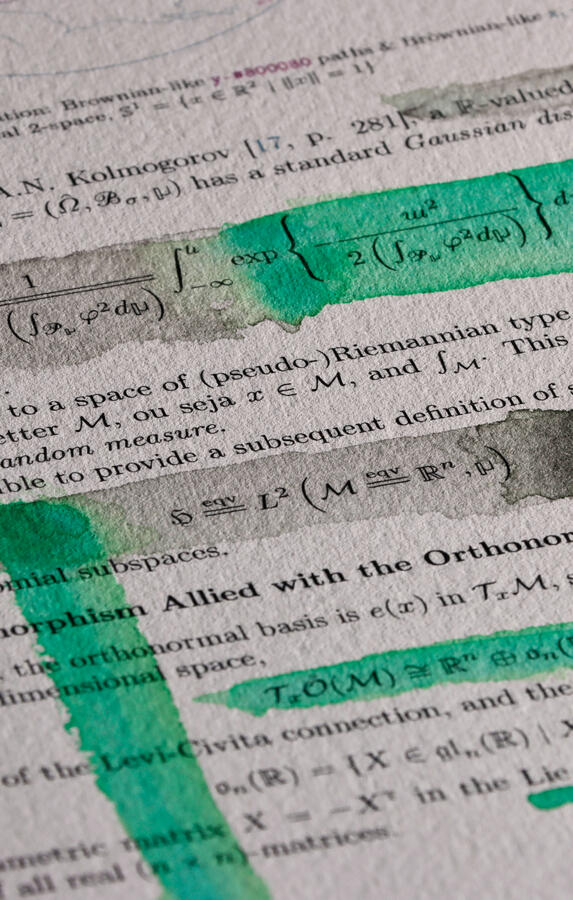 ition: Brownian-like y-a800080 paths & Brownian-like x,
al 2-space, 𝕊¹ = {x ∈ ℝ² | ||x|| = 1}
A.N. Kolmogorov [17, p. 281], a ℝ-valued
= (Ω̂, ℬσ, 𝕡) has a standard Gaussian dis
1 / (∫ φ²d𝕡) ∫_{-∞}^{u} exp { − w² / 2 (∫ φ²d𝕡) } d
to a space of (pseudo-)Riemannian type
etter ℳ, ou seja x ∈ ℳ, and ∫ℳ. This
andom measure.
ble to provide a subsequent definition of s
ℌ eqv== L² (ℳ eqv== ℝⁿ, 𝕡)
omial subspaces.
norphism Allied with the Orthonor
, the orthonormal basis is e(x) in 𝒯ₓℳ, s
dimensional space,
𝒯ₓO(ℳ) ≅ ℝⁿ ⊕ 𝔬ₙ(
of the Levi-Civita connection, and the
𝔬ₙ(ℝ) = {X ∈ 𝔤𝔩ₙ(ℝ) | X
ametric matrix X = −Xᵀ in the Lie
f all real (n × n)-matrices.